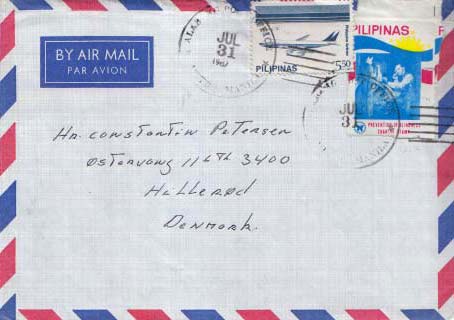 BY AIR MAIL
PAR AVION
JUL
31
PILIPINAS
5.50
PILIPINAS
JUL
31
MANILA
PREVENTION OF BLINDNESS
Hr. Constantin Petersen
Østervang 11 6th 3400
Hillerød
Denmark.